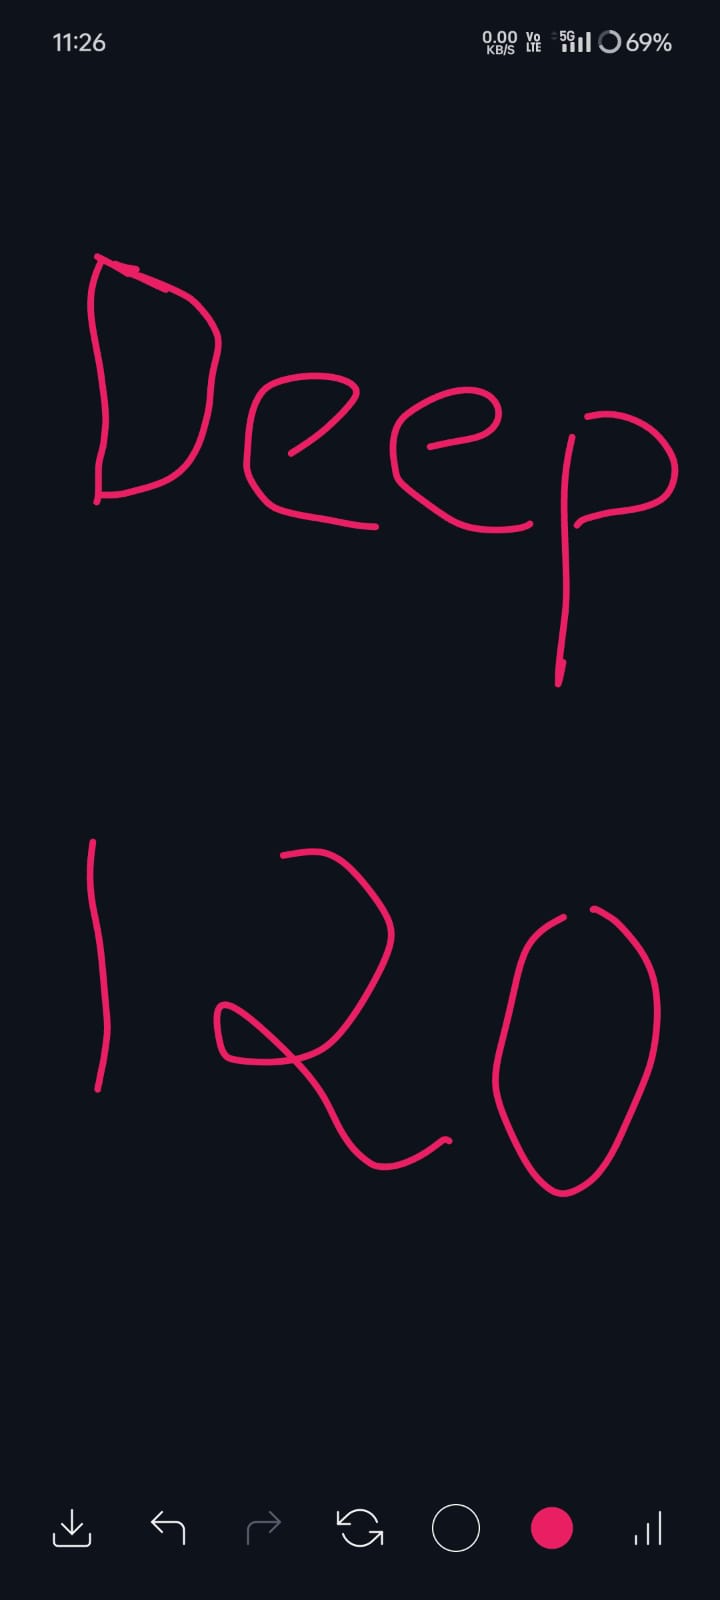 11:26 0.00 KB/S Vo LTE 5G 69%
Deep
120